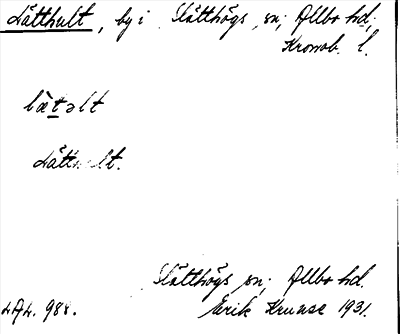 Lätthult, by i Slätthögs sn; Allbo hd,
Kronob. l.
læ̀təlt
Slätthögs sn; Allbo hd.
LAL. 988. Erik Kruuse 1931.